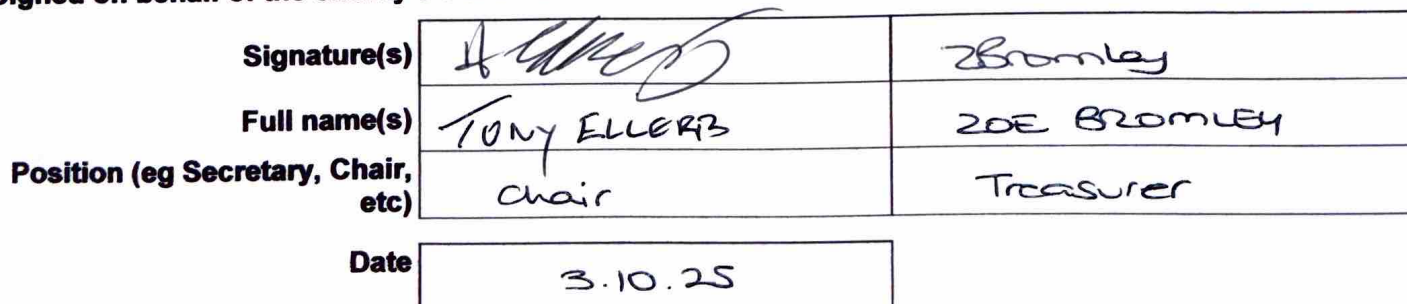 Signature(s) ZBromley
Full name(s) TONY ZOE BROMLEY
Position (eg Secretary, Chair,
etc) Chair Treasurer
Date 3.10.25